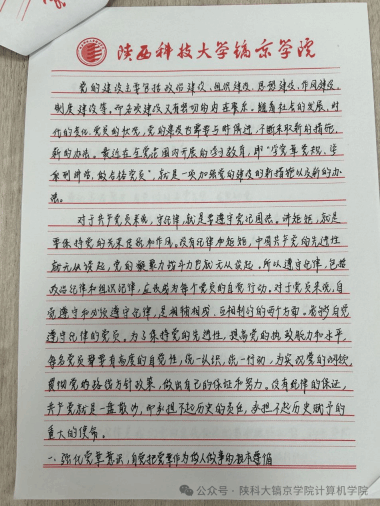 陕西科技大学镐京学院
党的建设主要包括政治建设、组织建设、思想建设、作风建设、
制度建设等。而各项建设又有特别的内在联系。随着社会的发展、时
代的变化、党员的状况，党的建设也要要与时俱进，不断采取新的措施、
新的办法。最近在全党范围内开展的学习教育，即“学党章党规、学
系列讲话，做合格党员”，就是一次加强党的建设的新措施以及新的办
法。
对于共产党员来说，守纪律，就是要遵守党纪国法。讲规矩，就是
要保持党的光荣传统和作风。没有纪律和规矩，中国共产党的先进性
就无从谈起，党的凝聚力战斗力也就无从谈起。所以遵守纪律，包括
政治纪律和组织纪律，应该成为每个党员的自觉行动。对于党员来说，自
觉遵守和必须遵守纪律，是相辅相成、互相制约的两个方面。能够自觉
遵守纪律的党员。为了保持党的先进性，提高党的执政能力和水平，
每名党员要要有高度的自觉性，统一认识，统一行动，为实现党的纲领，
贯彻党的路线方针政策，做出自己的保证和努力。没有纪律的保证，
共产党就是一盘散沙，即承担不起历史的责任，承担不起历史赋予的
重大的使命。
一、强化党章意识，自觉把党章作为做人做事的根本遵循
公众号 · 陕科大镐京学院计算机学院